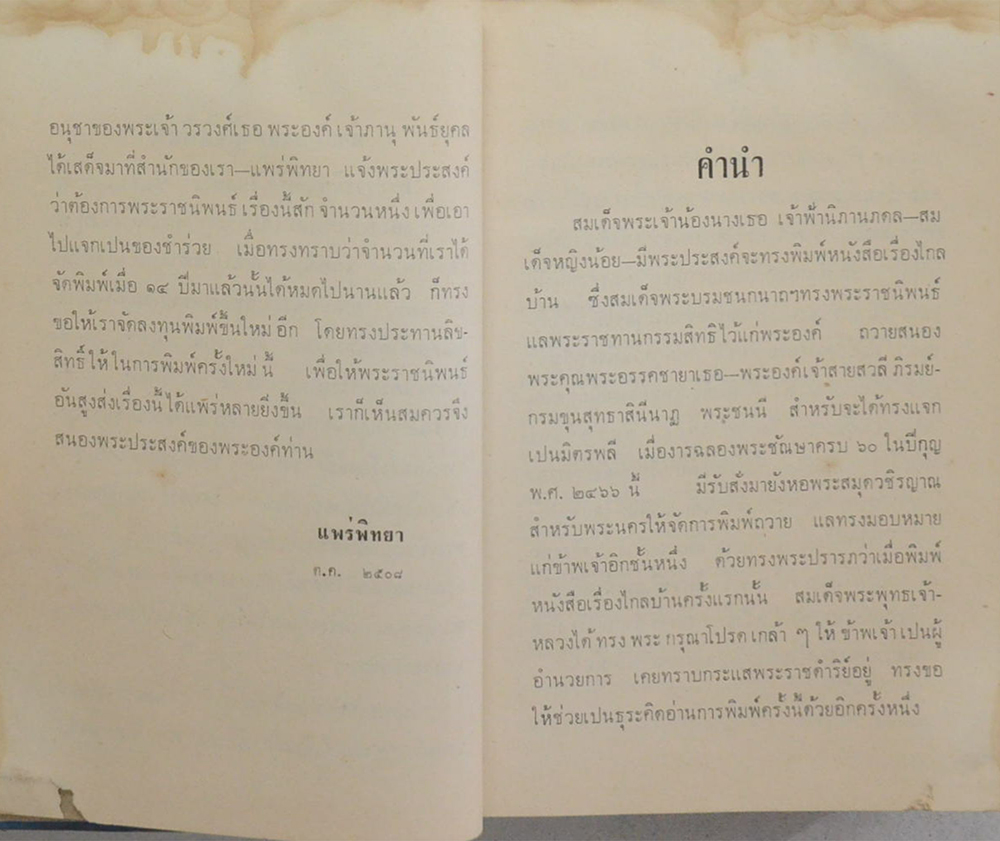 อนุชาของพระเจ้า วรวงศ์เธอ พระองค์ เจ้าภานุ พันธ์ยุคล
ได้เสด็จมาที่สำนักของเรา—แพร่พิทยา แจ้งพระประสงค์
ว่าต้องการพระราชนิพนธ์ เรื่องนี้สัก จำนวนหนึ่ง เพื่อเอา
ไปแจกเปนของชำร่วย เมื่อทรงทราบว่าจำนวนที่เราได้
จัดพิมพ์เมื่อ ๑๔ ปีมาแล้วนั้นได้หมดไปนานแล้ว ก็ทรง
ขอให้เราจัดลงทุนพิมพ์ขึ้นใหม่ อีก โดยทรงประทานลิข-
สิทธิ์ ให้ ในการพิมพ์ครั้งใหม่ นี้ เพื่อให้พระราชนิพนธ์
อันสูงส่งเรื่องนี้ ได้แพร่หลายยิ่งขึ้น เราก็เห็นสมควรจึง
สนองพระประสงค์ของพระองค์ท่าน
แพร่พิทยา
ต.ค. ๒๕๐๘
คำนำ
สมเด็จพระเจ้าน้องนางเธอ เจ้าฟ้านิภานภดล—สม
เด็จหญิงน้อย—มีพระประสงค์จะทรงพิมพ์หนังสือเรื่องไกล
บ้าน ซึ่งสมเด็จพระบรมชนกนาถฯทรงพระราชนิพนธ์
แลพระราชทานกรรมสิทธิไว้แก่พระองค์ ถวายสนอง
พระคุณพระอรรคชายาเธอ—พระองค์เจ้าสายสวลี ภิรมย์-
กรมขุนสุทธาสินีนาฏ พระชนนี สำหรับจะได้ทรงแจก
เปนมิตรพลี เมื่องารฉลองพระชัณษาครบ ๖๐ ในปีกุญ
พ.ศ. ๒๔๖๖ นี้ มีรับสั่งมายังหอพระสมุดวชิรญาณ
สำหรับพระนครให้จัดการพิมพ์ถวาย แลทรงมอบหมาย
แก่ข้าพเจ้าอิกชั้นหนึ่ง ด้วยทรงพระปรารภว่าเมื่อพิมพ์
หนังสือเรื่องไกลบ้านครั้งแรกนั้น สมเด็จพระพุทธเจ้า-
หลวงได้ ทรง พระ กรุณาโปรด เกล้า ๆ ให้ ข้าพเจ้า เปนผู้
อำนวยการ เคยทราบกระแสพระราชดำริย์อยู่ ทรงขอ
ให้ช่วยเปนธุระคิดอ่านการพิมพ์ครั้งนี้ด้วยอิกครั้งหนึ่ง